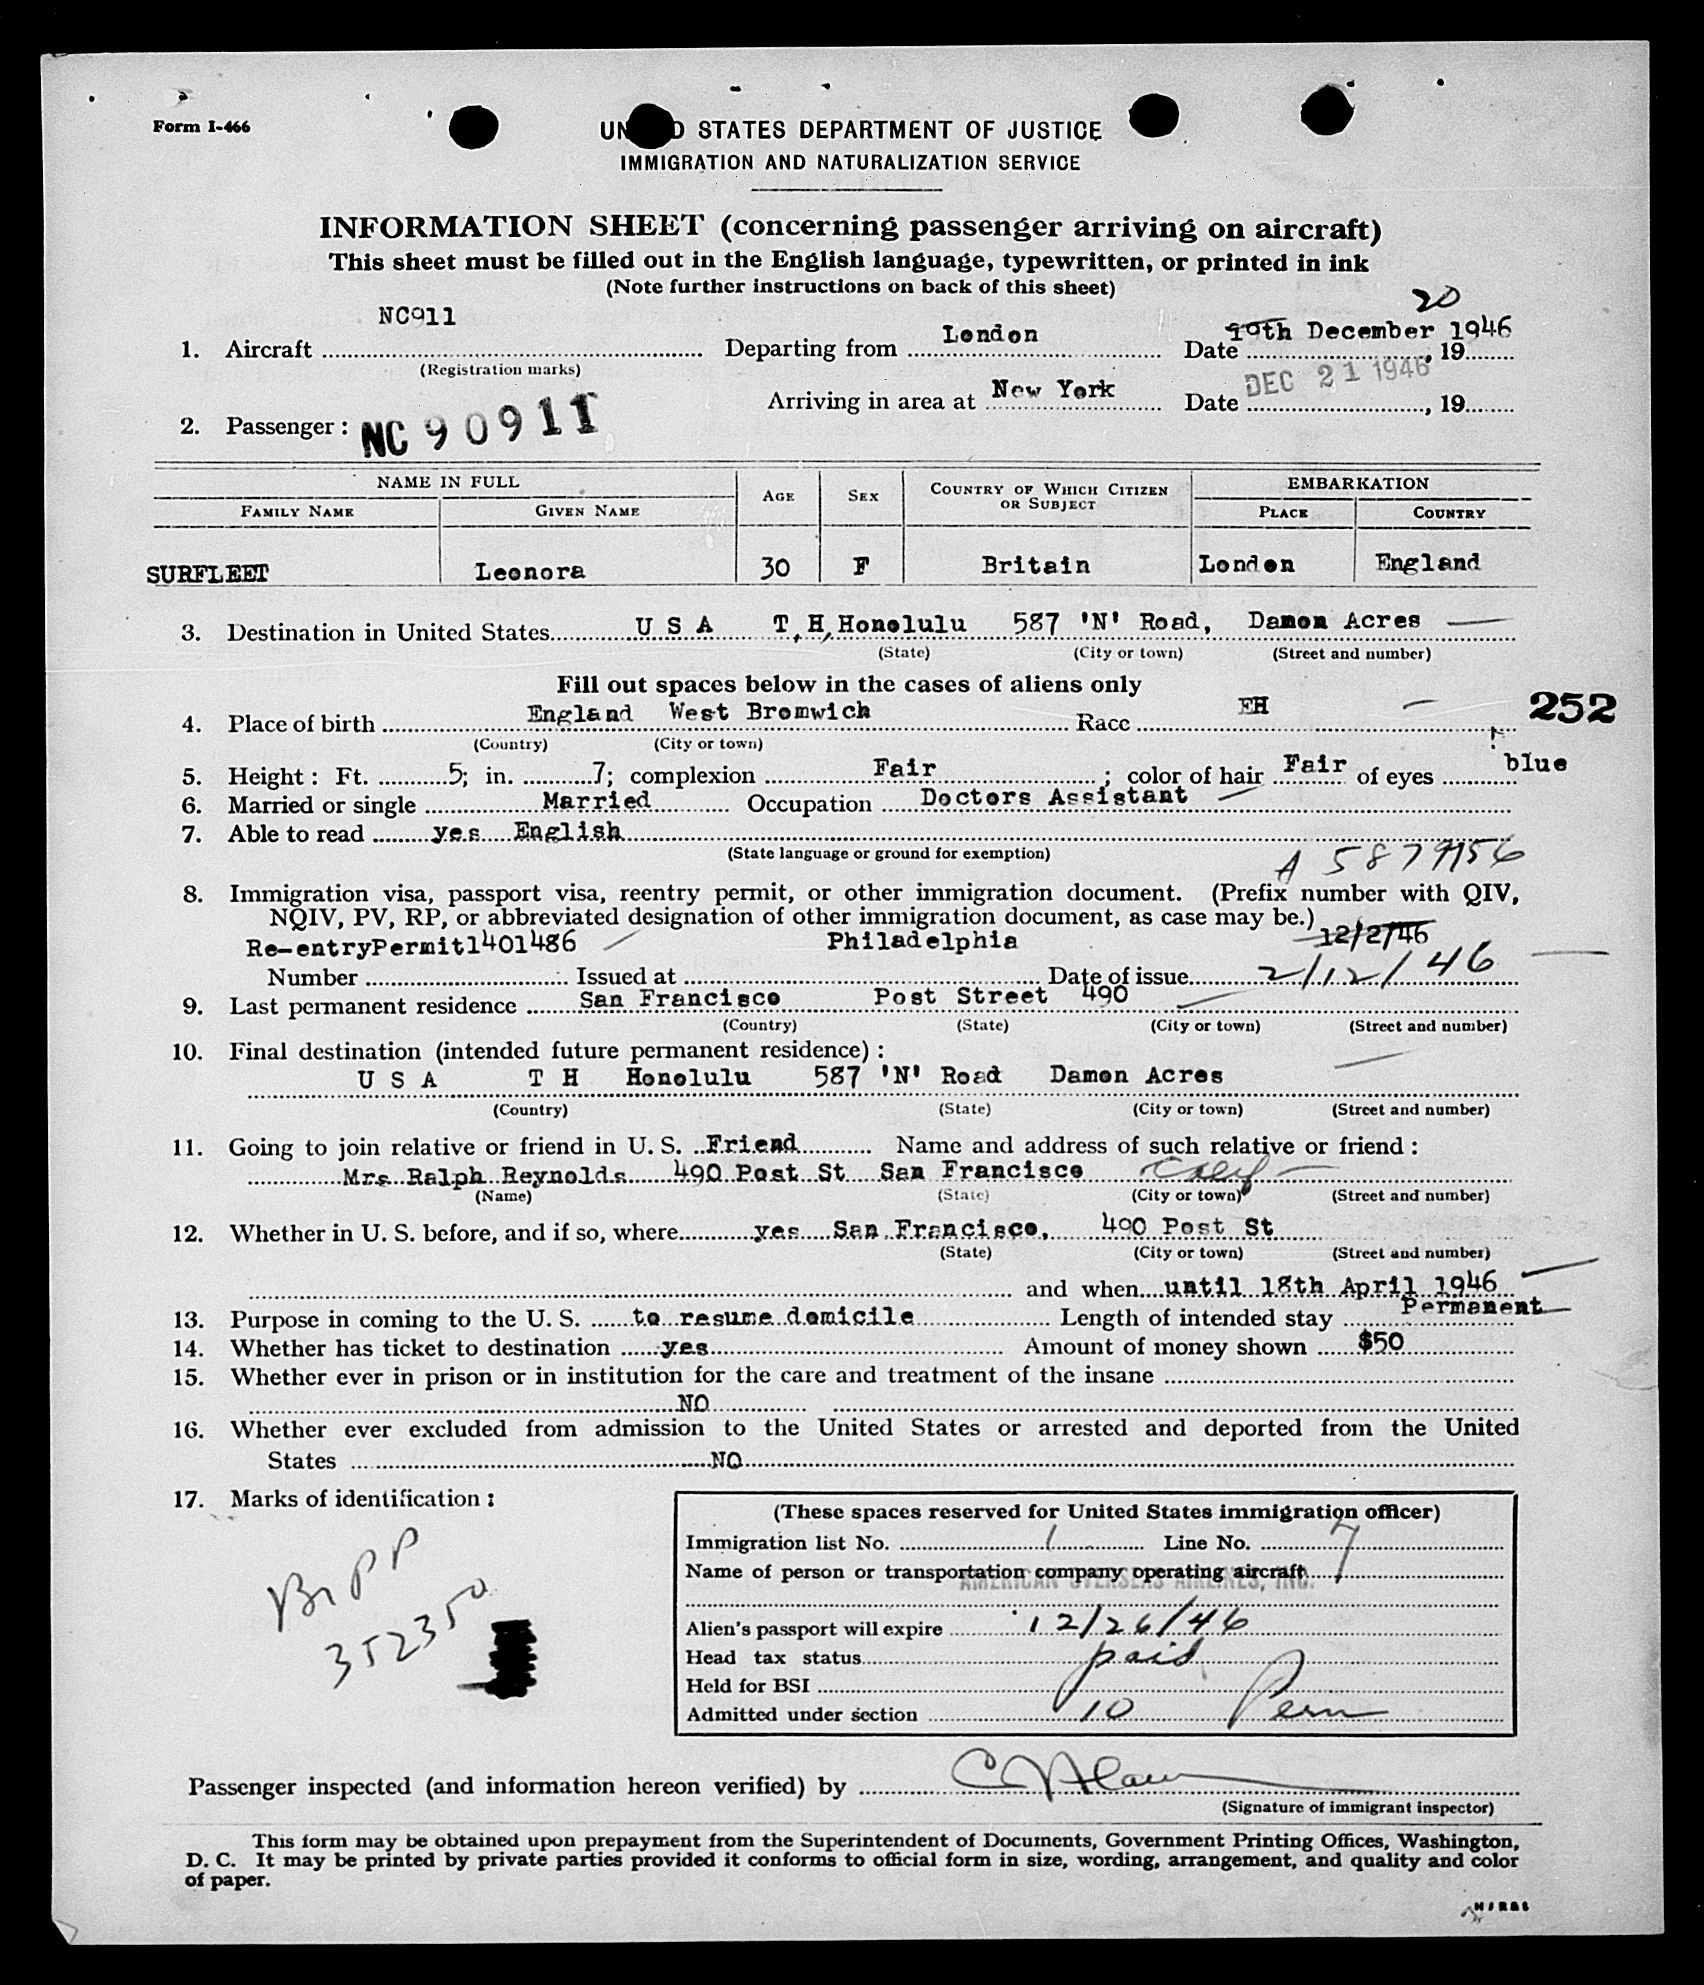 Form I-466
UNITED STATES DEPARTMENT OF JUSTICE
IMMIGRATION AND NATURALIZATION SERVICE
INFORMATION SHEET (concerning passenger arriving on aircraft)
This sheet must be filled out in the English language, typewritten, or printed in ink
(Note further instructions on back of this sheet)
20
NC911 London 19th December 1946
1. Aircraft Departing from Date , 19
(Registration marks)
DEC 21 1946
New York
Arriving in area at Date , 19
2. Passenger: NC 90911
NAME IN FULL AGE SEX COUNTRY OF WHICH CITIZEN OR SUBJECT EMBARKATION
FAMILY NAME GIVEN NAME PLACE COUNTRY
SURFLEET Leonora 30 F Britain London England
3. Destination in United States U S A T,H, Honolulu 587 'N' Road, Damon Acres
(State) (City or town) (Street and number)
Fill out spaces below in the cases of aliens only
4. Place of birth England West Bromwich Race EH 252
(Country) (City or town)
5. Height: Ft. 5; in. 7; complexion Fair; color of hair Fair of eyes blue
6. Married or single Married Occupation Doctors Assistant
7. Able to read yes English
(State language or ground for exemption)
A 5879156
8. Immigration visa, passport visa, reentry permit, or other immigration document. (Prefix number with QIV,
NQIV, PV, RP, or abbreviated designation of other immigration document, as case may be.)
Re-entryPermit1401486 Philadelphia 12/2/46
Number Issued at Date of issue 2/12/46
9. Last permanent residence San Francisco Post Street 490
(Country) (State) (City or town) (Street and number)
10. Final destination (intended future permanent residence):
U S A T H Honolulu 587 'N' Road Damon Acres
(Country) (State) (City or town) (Street and number)
11. Going to join relative or friend in U. S. Friend Name and address of such relative or friend:
Mrs Ralph Reynolds 490 Post St San Francisco Calif
(Name) (State) (City or town) (Street and number)
12. Whether in U. S. before, and if so, where yes San Francisco, 490 Post St
(State) (City or town) (Street and number)
and when until 18th April 1946
13. Purpose in coming to the U. S. to resume domicile Length of intended stay Permanent
14. Whether has ticket to destination yes Amount of money shown $50
15. Whether ever in prison or in institution for the care and treatment of the insane
NO
16. Whether ever excluded from admission to the United States or arrested and deported from the United
States NO
17. Marks of identification:
Br PP
352350
(These spaces reserved for United States immigration officer)
Immigration list No. 1 Line No. 7
Name of person or transportation company operating aircraft
AMERICAN OVERSEAS AIRLINES, INC.
Alien's passport will expire 12/26/46
Head tax status paid
Held for BSI
Admitted under section 10 Perm
Passenger inspected (and information hereon verified) by
(Signature of immigrant inspector)
This form may be obtained upon prepayment from the Superintendent of Documents, Government Printing Offices, Washington,
D. C. It may be printed by private parties provided it conforms to official form in size, wording, arrangement, and quality and color
of paper.